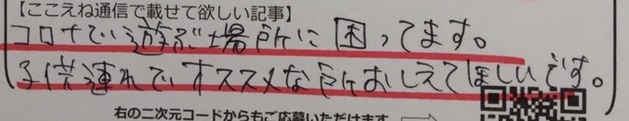 【ここえね通信で載せて欲しい記事】
コロナで遊ぶ場所に困ってます。
子供連れでオススメな所おしえてほしいです。
右の二次元コードからもご応募いただけます